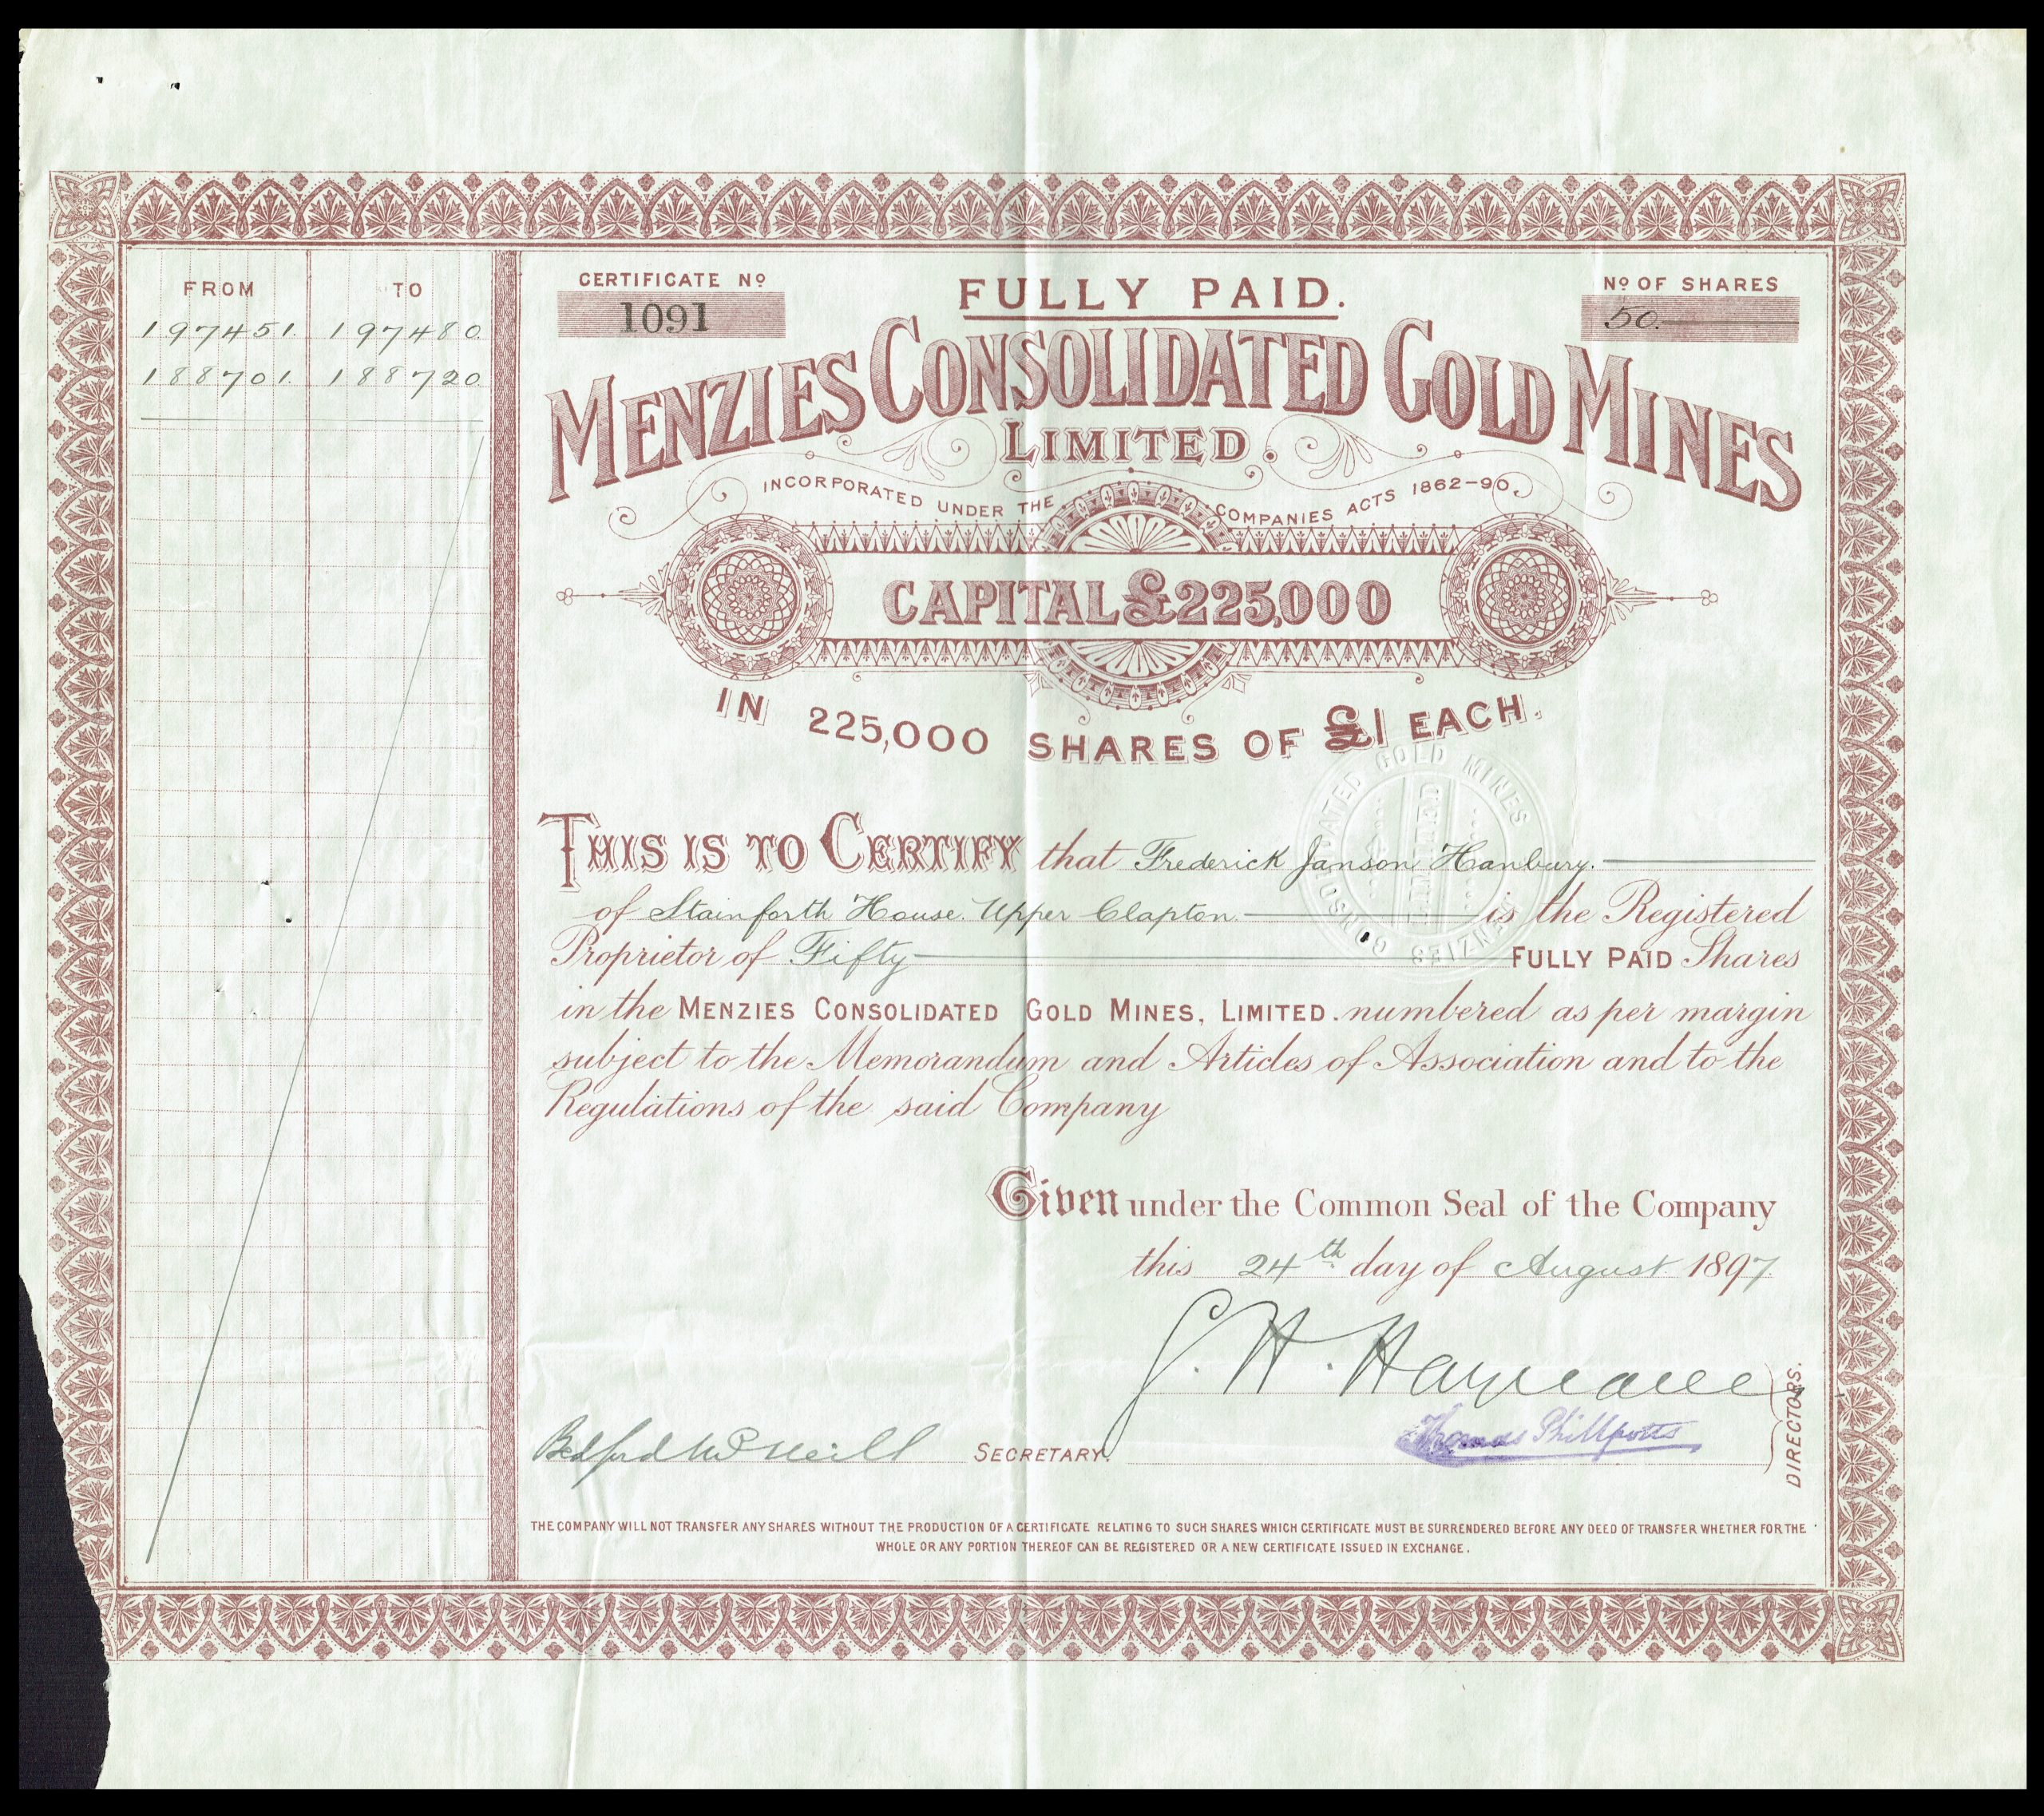 FROM TO
197451. 197480.
188701. 188720.
CERTIFICATE Nº
1091
FULLY PAID.
Nº OF SHARES
50.
MENZIES CONSOLIDATED GOLD MINES
LIMITED.
INCORPORATED UNDER THE COMPANIES ACTS 1862-90.
CAPITAL £225,000
IN 225,000 SHARES OF £1 EACH.
THIS IS TO CERTIFY that Frederick Janson Hanbury.
of Stainforth House. Upper Clapton. is the Registered
Proprietor of Fifty FULLY PAID Shares
in the MENZIES CONSOLIDATED GOLD MINES, LIMITED. numbered as per margin
subject to the Memorandum and Articles of Association and to the
Regulations of the said Company
MENZIES CONSOLIDATED GOLD MINES
LIMITED
Given under the Common Seal of the Company
this 24th day of August 1897.
Bedford McNeill SECRETARY.
Thomas Phillpotts
DIRECTORS.
THE COMPANY WILL NOT TRANSFER ANY SHARES WITHOUT THE PRODUCTION OF A CERTIFICATE RELATING TO SUCH SHARES WHICH CERTIFICATE MUST BE SURRENDERED BEFORE ANY DEED OF TRANSFER WHETHER FOR THE
WHOLE OR ANY PORTION THEREOF CAN BE REGISTERED OR A NEW CERTIFICATE ISSUED IN EXCHANGE.